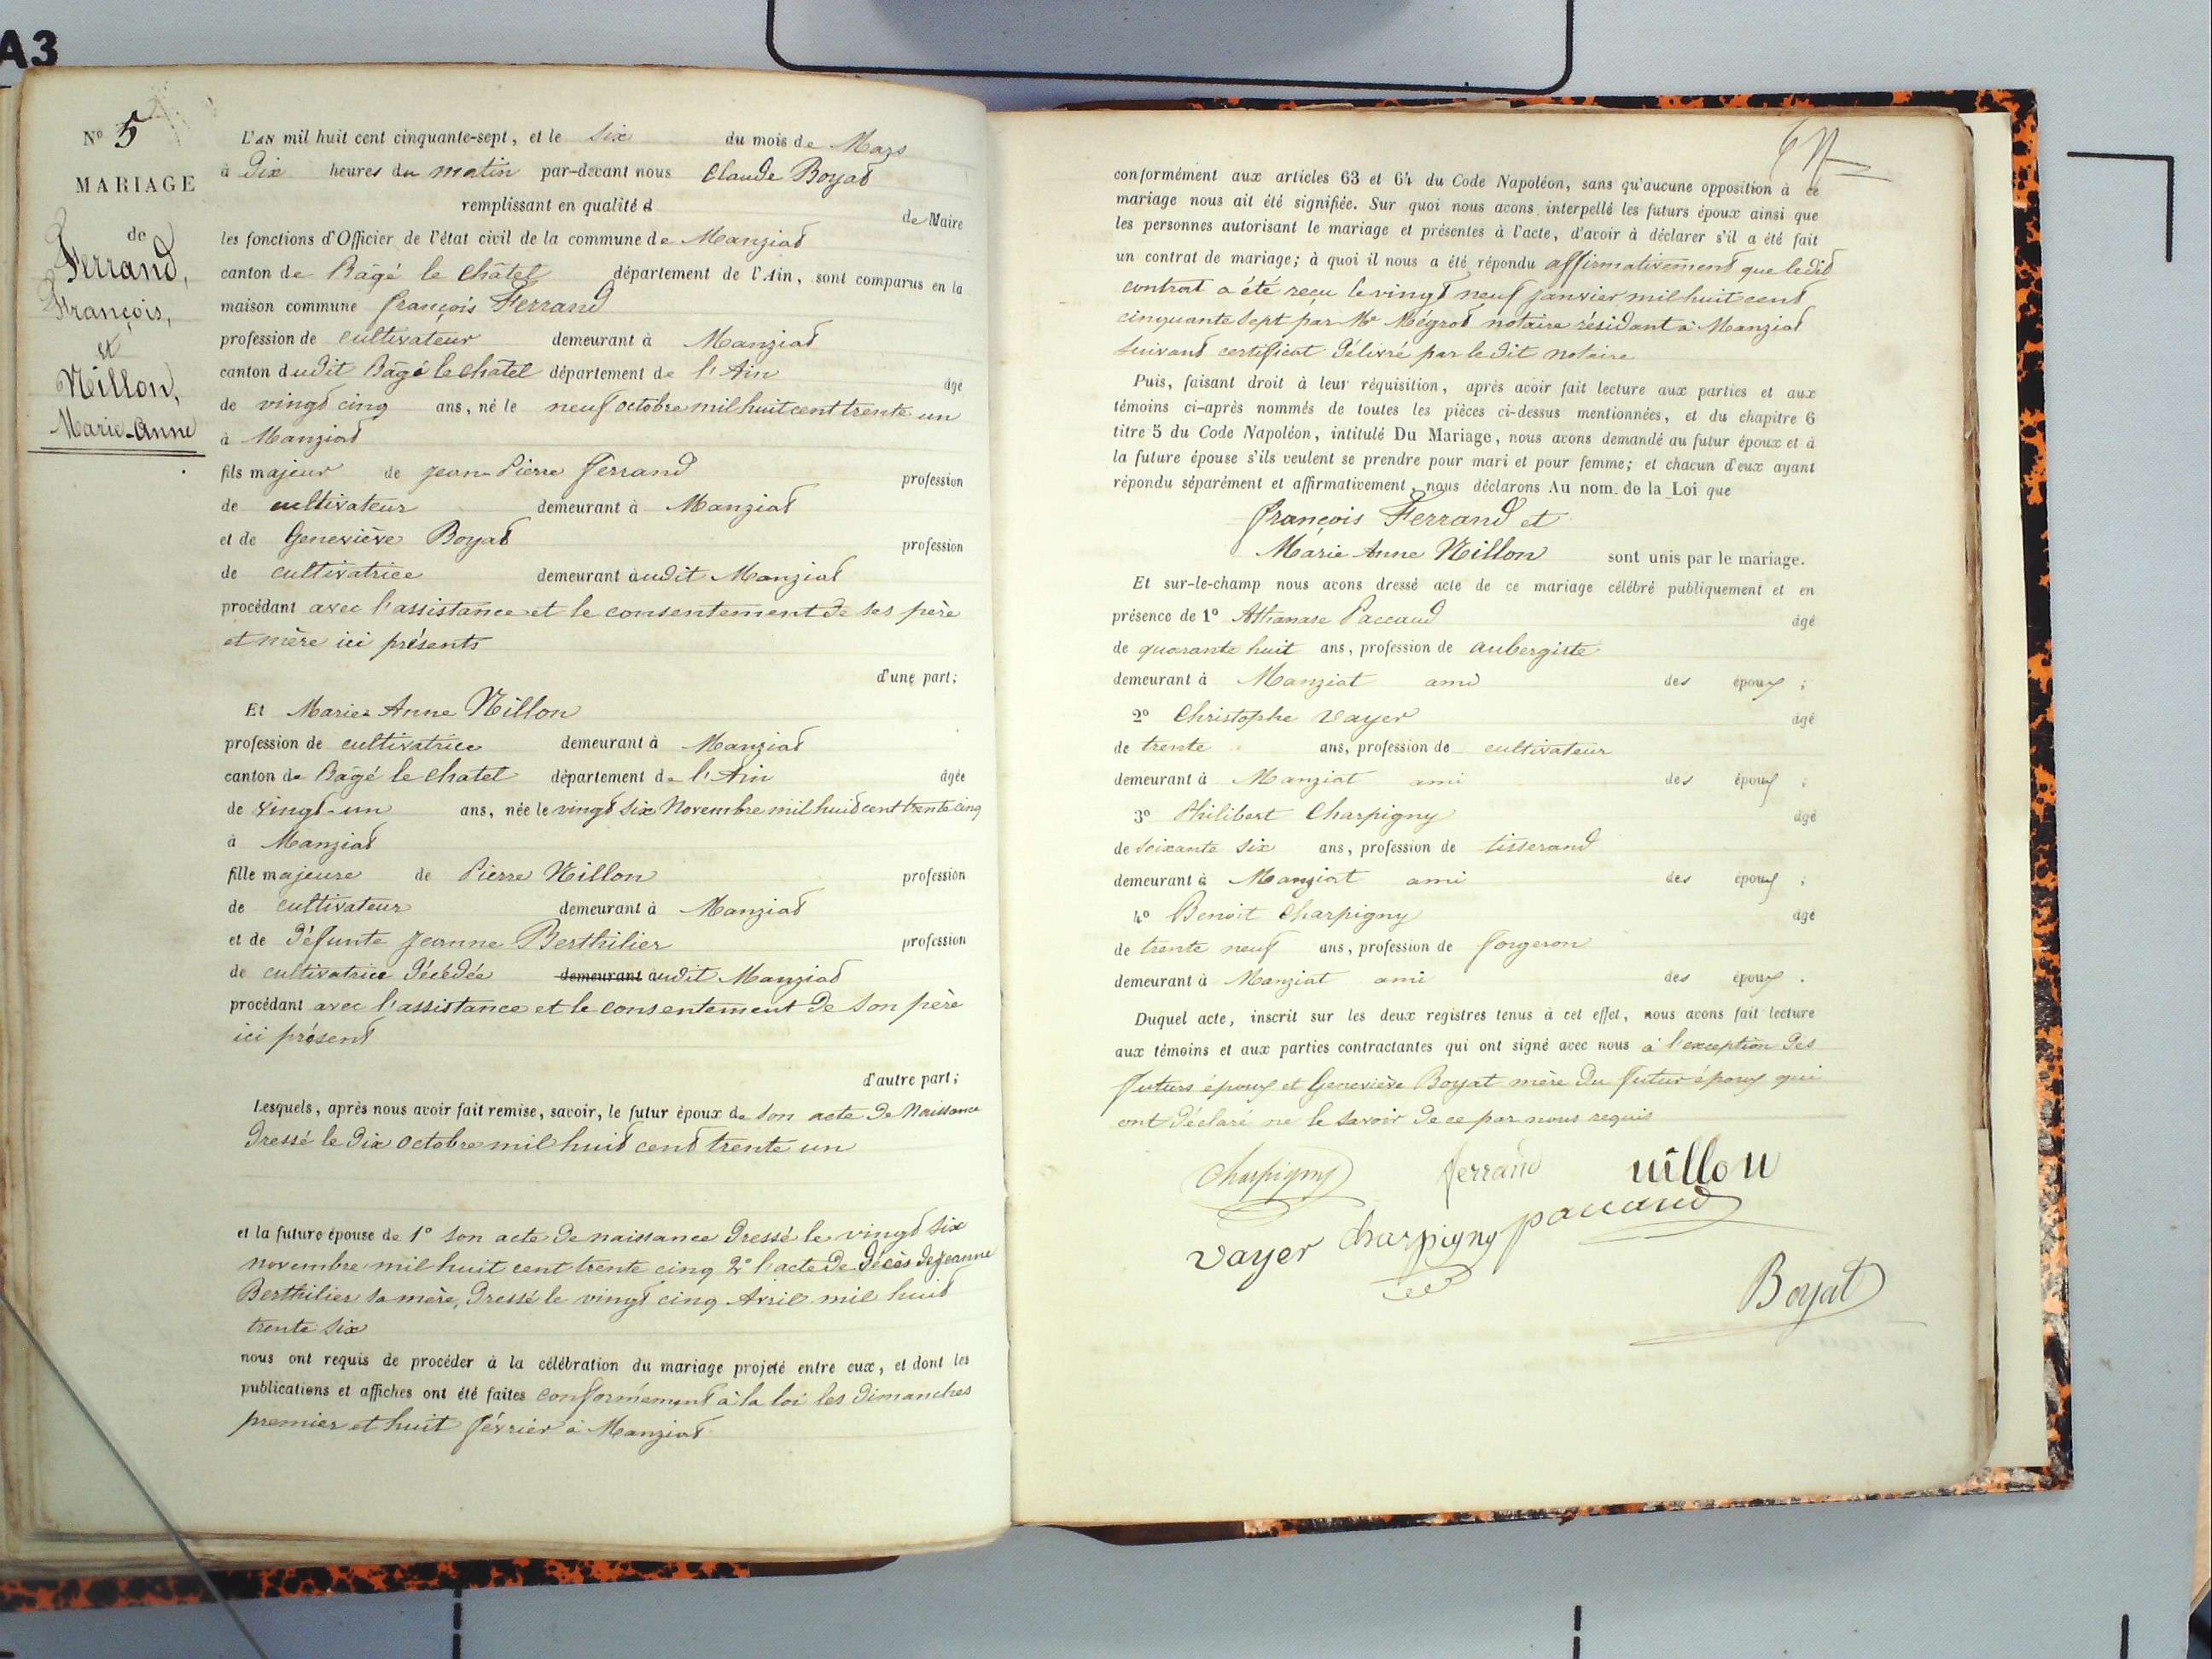 A3
N° 5
MARIAGE
de
Ferrand,
François,
et
Nillon,
Marie-Anne
L'AN mil huit cent cinquante-sept, et le six du mois de Mars
à Dix heures du matin par-devant nous Claude Boyat
remplissant en qualité d de Maire
les fonctions d'Officier de l'état civil de la commune de Manziat
canton de Bâgé le Châtel département de l'Ain, sont comparus en la
maison commune françois Ferrand
profession de cultivateur demeurant à Manziat
canton dudit Bâgé le châtel département de l'Ain âgé
de vingt cinq ans, né le neuf octobre mil huit cent trente un
à Manziat
fils majeur de jean Pierre ferrand profession
de cultivateur demeurant à Manziat
et de Geneviève Boyat profession
de cultivatrice demeurant audit Manziat
procédant avec l'assistance et le consentement de ses père
et mère ici présents
d'une part;
Et Marie Anne Nillon
profession de cultivatrice demeurant à Manziat
canton de Bâgé le chatel département de l'Ain âgée
de vingt-un ans, née le vingt six Novembre mil huit cent trente cinq
à Manziat
fille majeure de Pierre Nillon profession
de cultivateur demeurant à Manziat
et de défunte jeanne Berthilier profession
de cultivatrice décédée demeurant audit Manziat
procédant avec l'assistance et le consentement de son père
ici présent
d'autre part;
Lesquels, après nous avoir fait remise, savoir, le futur époux de son acte de Naissance
dressé le dix octobre mil huit cent trente un
et la future épouse de 1° son acte de naissance dressé le vingt six
novembre mil huit cent trente cinq 2° l'acte de décès de jeanne
Berthilier sa mère, dressé le vingt cinq Avril mil huit
trente six
nous ont requis de procéder à la célébration du mariage projeté entre eux, et dont les
publications et affiches ont été faites conformément à la loi les dimanches
premier et huit février à Manziat
conformément aux articles 63 et 64 du Code Napoléon, sans qu'aucune opposition à ce
mariage nous ait été signifiée. Sur quoi nous avons interpellé les futurs époux ainsi que
les personnes autorisant le mariage et présentes à l'acte, d'avoir à déclarer s'il a été fait
un contrat de mariage; à quoi il nous a été répondu affirmativement que ledit
contrat a été reçu le vingt neuf janvier mil huit cent
cinquante sept par Me Mégrot notaire résidant à Manziat
suivant certificat délivré par le dit notaire
Puis, faisant droit à leur réquisition, après avoir fait lecture aux parties et aux
témoins ci-après nommés de toutes les pièces ci-dessus mentionnées, et du chapitre 6
titre 5 du Code Napoléon, intitulé Du Mariage, nous avons demandé au futur époux et à
la future épouse s'ils veulent se prendre pour mari et pour femme; et chacun d'eux ayant
répondu séparément et affirmativement, nous déclarons Au nom de la Loi que
françois Ferrand et
Marie Anne Nillon sont unis par le mariage.
Et sur-le-champ nous avons dressé acte de ce mariage célébré publiquement et en
présence de 1° Athanase Paccaud âgé
de quarante huit ans, profession de aubergiste
demeurant à Manziat ami des époux ;
2° Christophe Vayer âgé
de trente ans, profession de cultivateur
demeurant à Manziat ami des époux ;
3° Philibert Charpigny âgé
de soixante six ans, profession de tisserand
demeurant à Manziat ami des époux ;
4° Benoit Charpigny âgé
de trente neuf ans, profession de forgeron
demeurant à Manziat ami des époux .
Duquel acte, inscrit sur les deux registres tenus à cet effet, nous avons fait lecture
aux témoins et aux parties contractantes qui ont signé avec nous à l'exception des
futurs époux et Geneviève Boyat mère du futur époux qui
ont déclaré ne le savoir de ce par nous requis
Charpigny ferrand nillon
Vayer Charpigny paccaud
Boyat